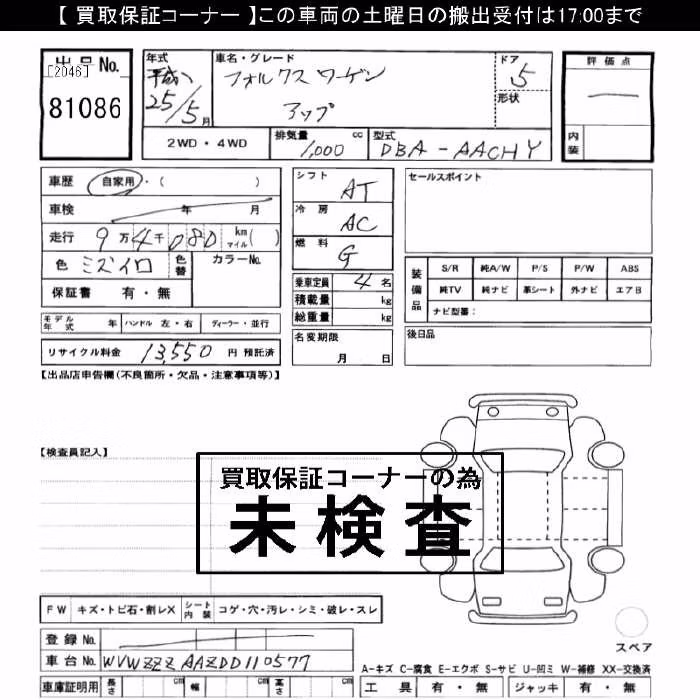 【 買取保証コーナー 】この車両の土曜日の搬出受付は17:00まで
出品No.
[2046]
81086
年式
平成
25/5月
車名・グレード
フォルクスワーゲン
アップ
ドア
5
形状
評価点
内装
2WD・4WD
排気量 cc
1,000
型式
DBA-AACHY
車歴 自家用・( )
車検 年 月
走行 9万4千080 km マイル( )
色 ミズイロ 色替 カラーNo.
保証書 有・無
シフト AT
冷房 AC
燃料 G
乗車定員 4名
積載量 kg
総重量 kg
セールスポイント
装備品
S/R 純A/W P/S P/W ABS
純TV 純ナビ 革シート 外ナビ エアB
ナビ型番:
モデル年式 年 ハンドル 左・右 ディーラー・並行
名変期限
月 日
後日品
リサイクル料金 13,550 円 預託済
【出品店申告欄(不良箇所・欠品・注意事項等)】
【検査員記入】
買取保証コーナーの為
未検査
FW キズ・トビ石・割レX シート内装 コゲ・穴・汚レ・シミ・破レ・スレ
登録No.
車台No. WVWZZZAAZDD110577
スペア
A-キズ C-腐食 E-エクボ S-サビ U-凹ミ W-補修 XX-交換済
車庫証明用 長さ cm 幅 cm 高さ cm
工具 有・無 ジャッキ 有・無